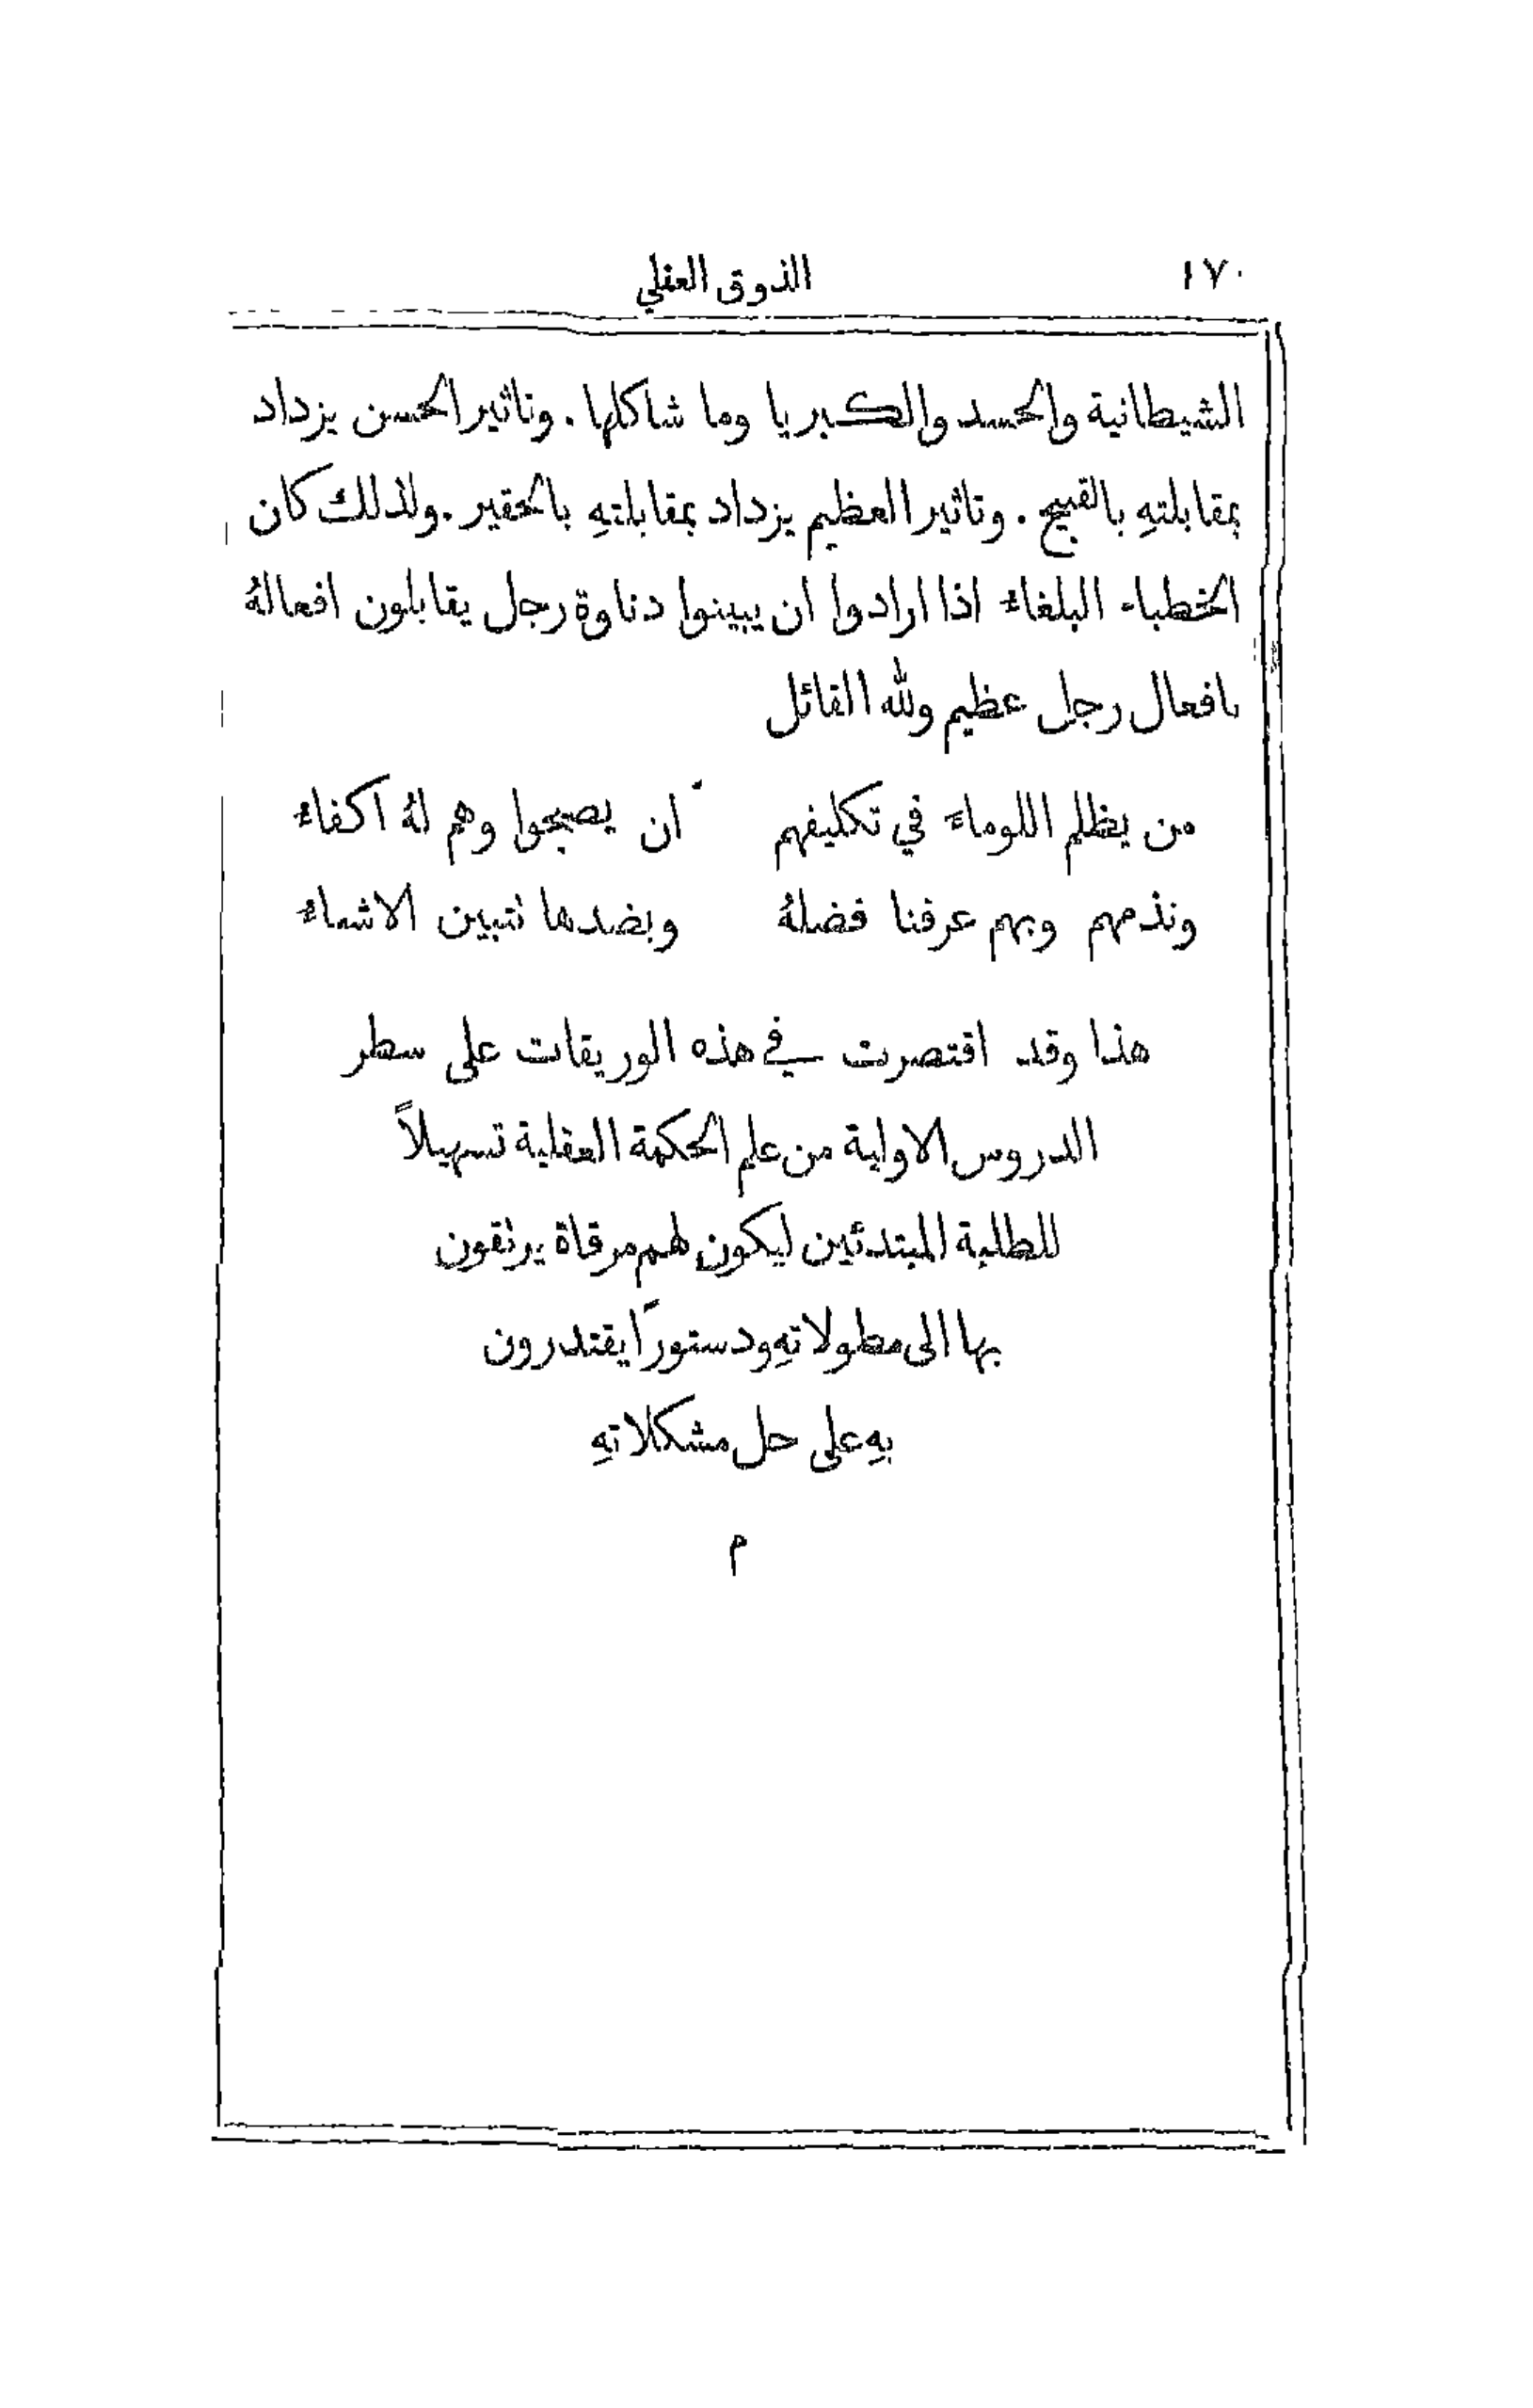 ١٧٠ الذوق العقلي
الشيطانية والحسد والكبريا وما شاكلها . وتاثير الحسن يزداد
بمقابلتهِ بالقبيح . وتاثير العظيم يزداد بمقابلتهِ بالحقير . ولذلك كان
الخطباء البلغاءُ اذا ارادوا ان يبينوا دناوة رجل يقابلون افعالهُ
بافعال رجل عظيم ولله القائل
من يظلم اللوماءَ في تكليفهم ان يصبحوا وهم لهُ اكفاءُ
ونذمهم وبهم عرفنا فضلهُ وبضدها نتبين الاشياءُ
هذا وقد اقتصرت في هذه الوريقات على سطر
الدروس الاولية من علم الحكمة العقلية تسهيلاً
للطلبة المبتدئين ليكون لهم مرقاة يرتقون
بها الى مطولاتهِ ودستورًا يقتدرون
بهِ على حل مشكلاتهِ
م